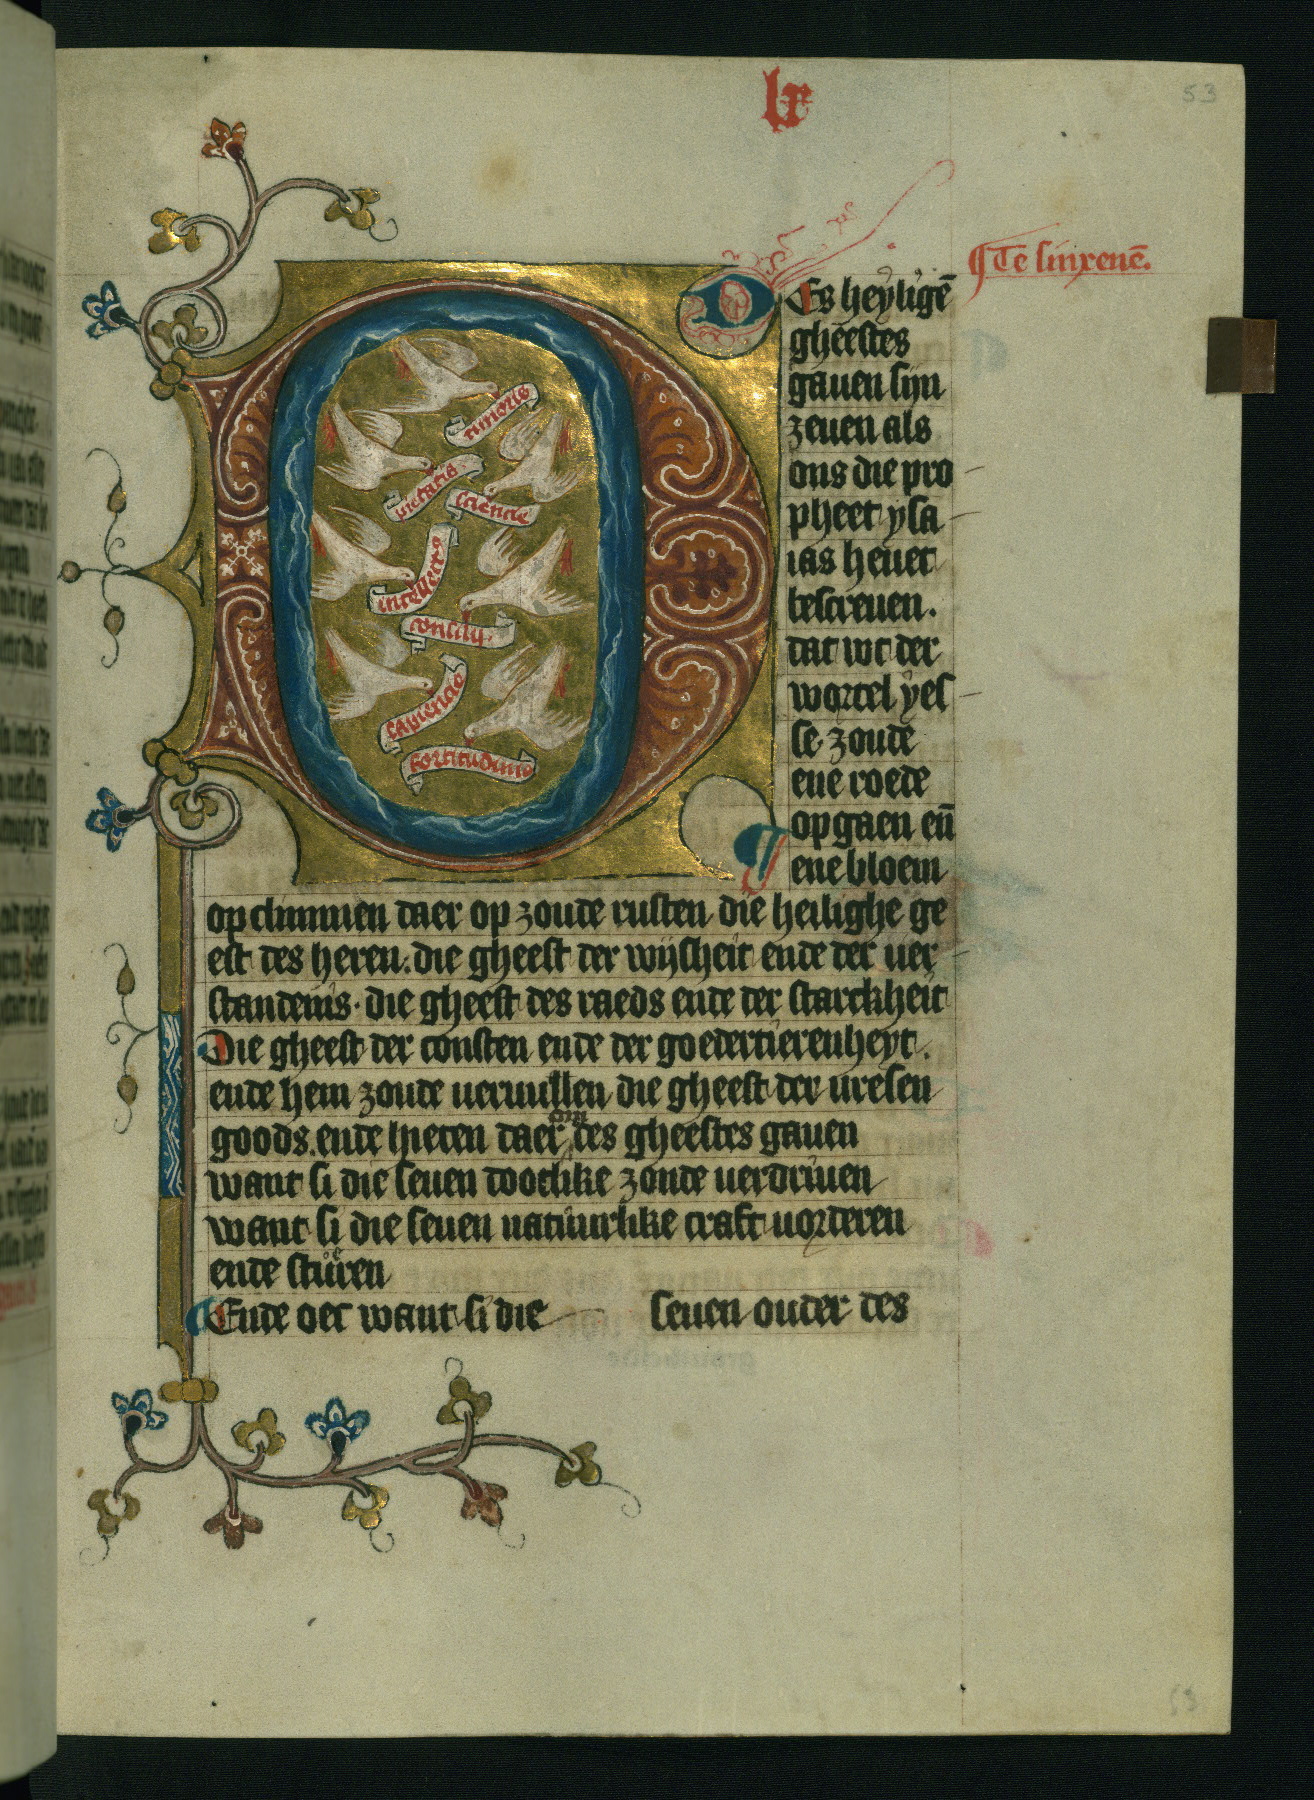 lx
53
¶ Te sinxenē.
timoris
pietatis
sciencie
intellectus
consilij
sapiencie
fortitudinis
DEs heyligē
gheestes
gauen sijn
zeuen als
ons die pro
pheet ysa
ias heuet
bescreuen.
dat wt der
wortel yes
se zoude
ene roede
op gaen eñ
ene bloem
op climmen daer op zoude rusten die heilighe ge
est des heren. die gheest der wijsheit ende der uer
standenis. die gheest des raeds ende der starckheit
Die gheest der consten ende der goedertierenheyt.
ende hem zoude ueruullen die gheest der uresen
goods. ende hieten daer om des gheestes gauen
want si die seuen dootlike zonde uerdriuen
want si die seuen natuurlike craft uorderen
ende stueren
Ende oec want si die seuen ouder des
53